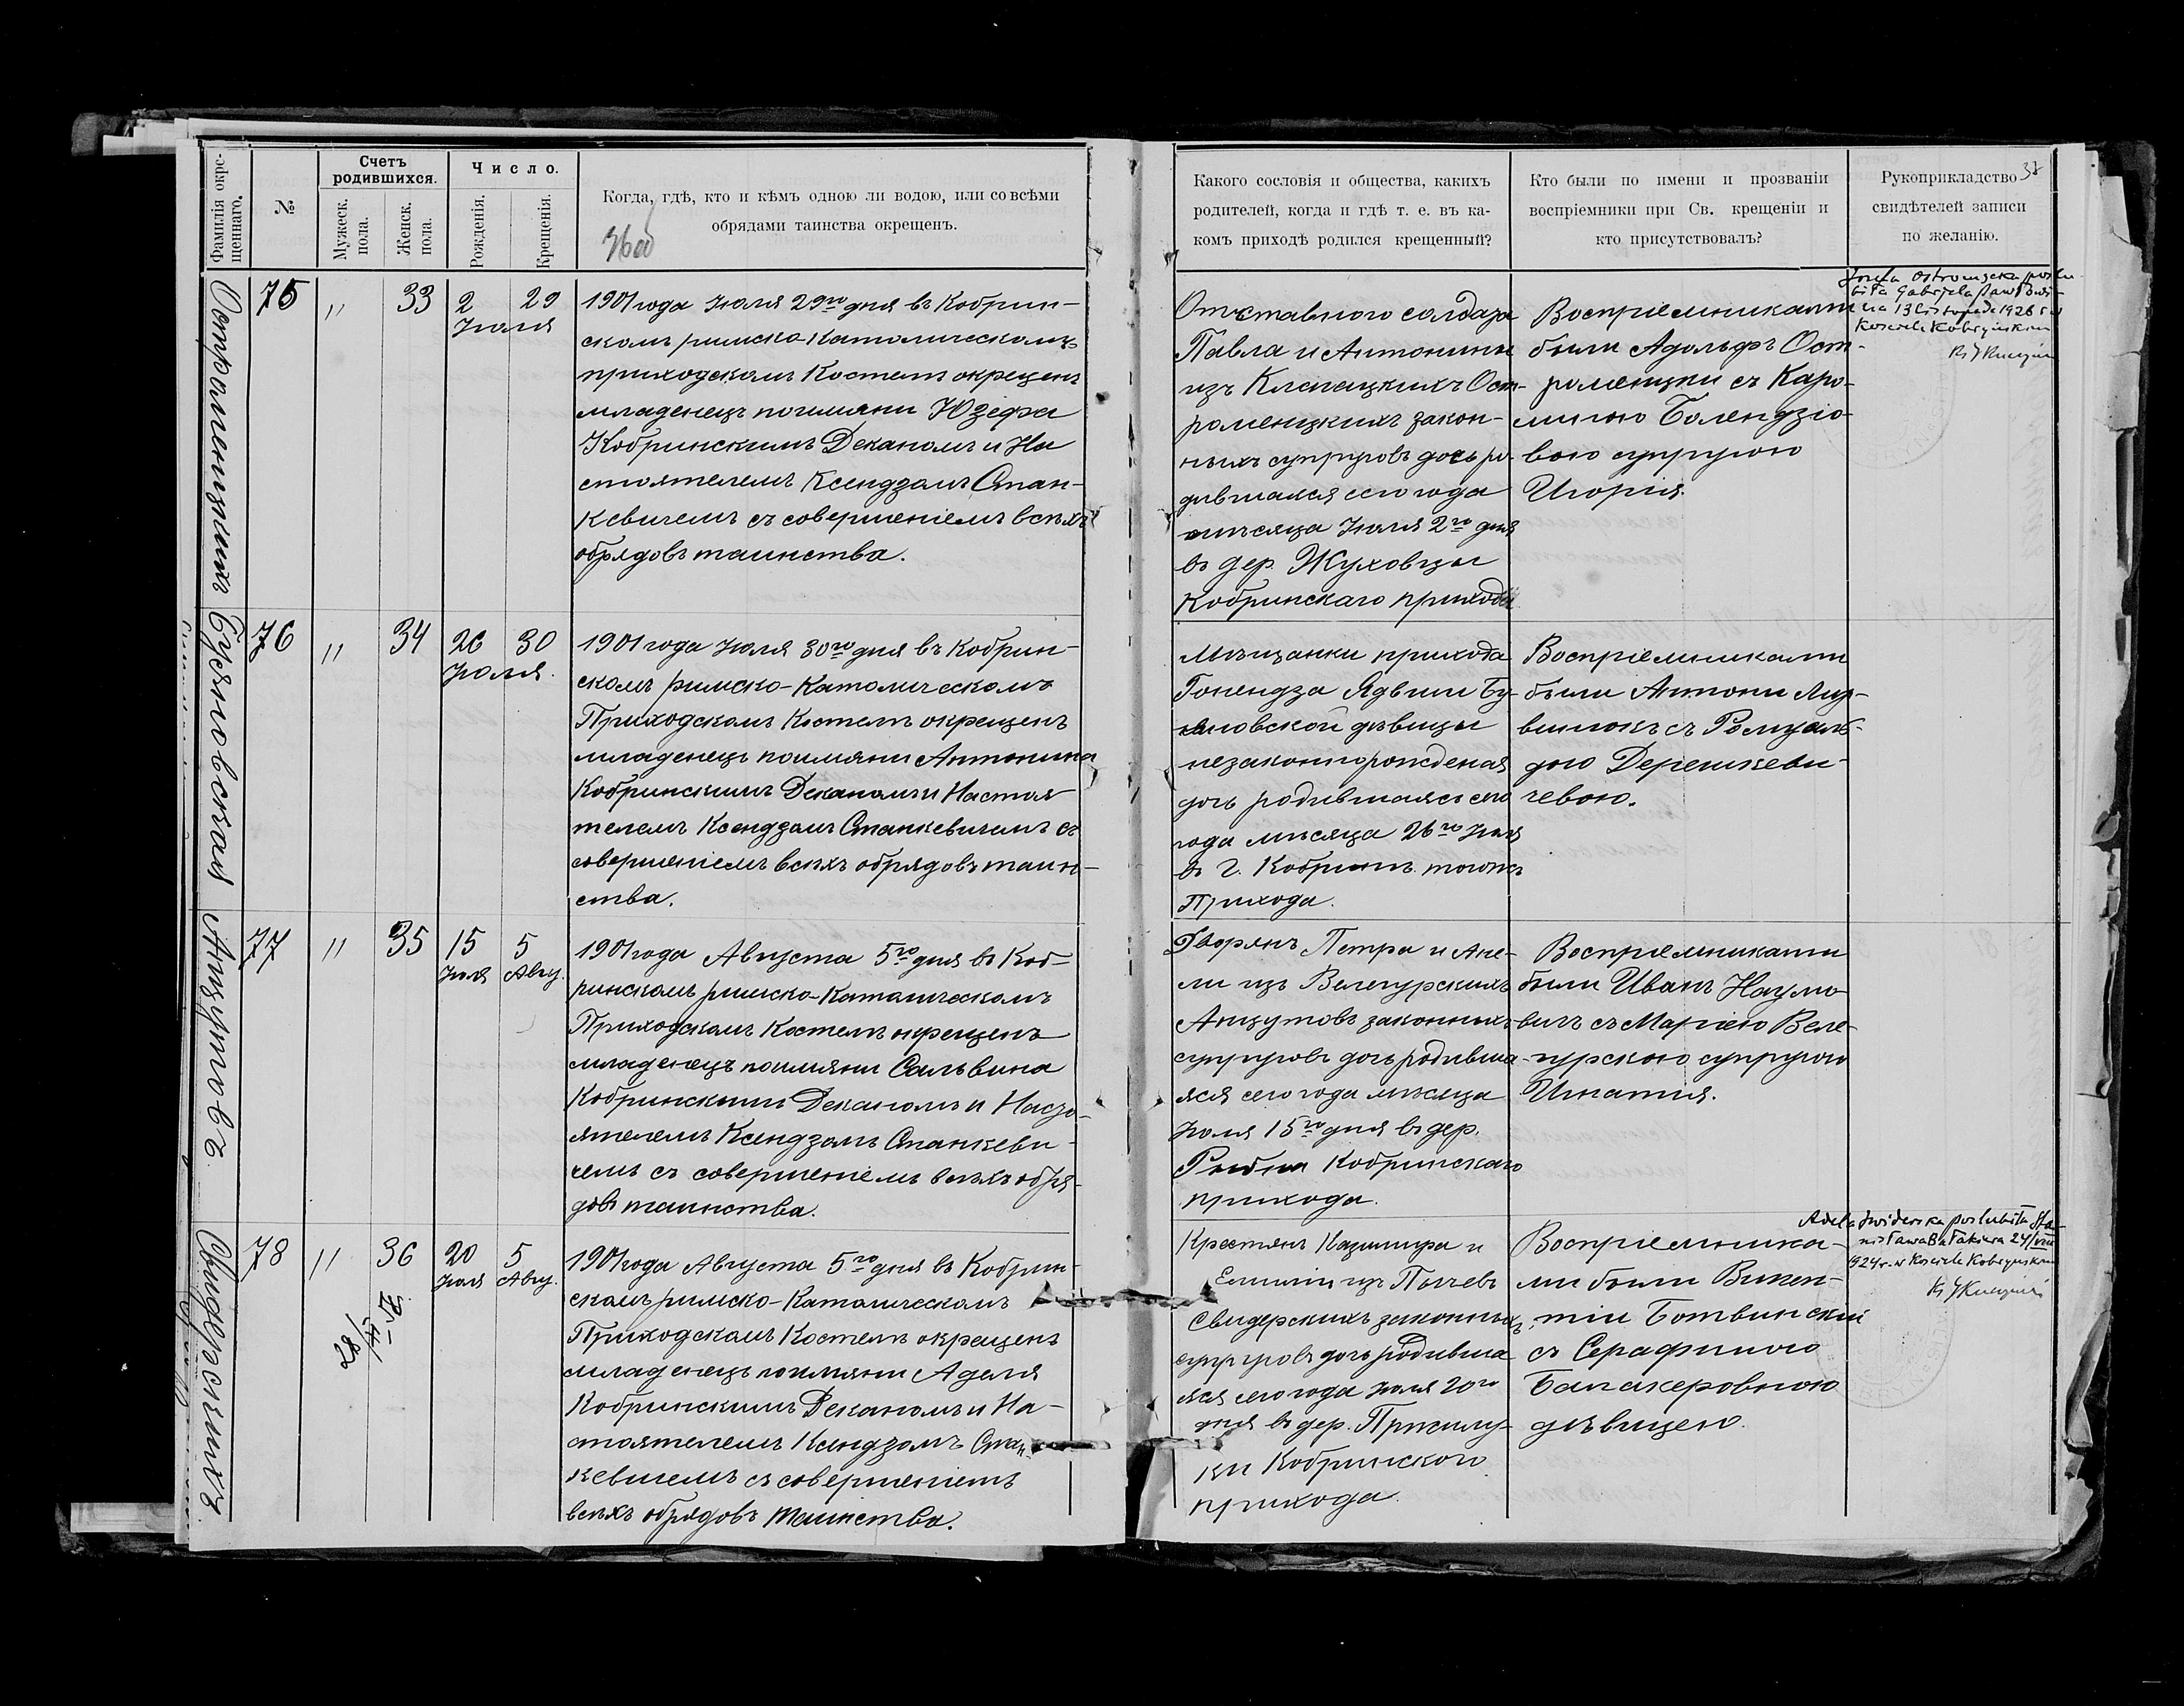 Фамилія окре-
щеннаго.
№
Счетъ
родившихся.
Мужеск.
пола.
Женск.
пола.
Число.
Рожденія.
Крещенія.
Когда, гдѣ, кто и кѣмъ одною ли водою, или со всѣми
обрядами таинства окрещенъ.
Какого сословія и общества, какихъ
родителей, когда и гдѣ т. е. въ ка-
комъ приходѣ родился крещенный?
Кто были по имени и прозваніи
воспріемники при Св. крещеніи и
кто присутствовалъ?
Рукоприкладство
свидѣтелей записи
по желанію.
37
Остроменцкихъ
75
"
33
2
29
Іюля
1901 года Іюля 29го дня въ Кобрин-
скомъ римско-Католическомъ
приходскомъ Костелѣ окрещенъ
младенецъ по имяни Юзефа
Кобринскимъ Деканомъ и На
стоятелемъ Ксендзомъ Стан-
кевичемъ съ совершеніемъ всѣхъ
обрядовъ таинства.
Отставного солдата
Павла и Антонины
изъ Ост-
роменцкихъ закон-
ныхъ супруговъ дочь ро-
дившаяся сего года
мѣсяца Іюля 2го дня
въ дер. Жуховцы
Кобринскаго прихода
Воспріемниками
были Адольфъ Ост-
роменцки съ Каро-
линою Болендзіо-
вою супругою
Игорія.
Ostromęcka poślu
biła Gabrjela
na 13 listopada 1926 r w
Kosciele Kobryńskim
76
"
34
26
30
Іюля.
1901 года Іюля 30го дня въ Кобрин-
скомъ римско-Католическомъ
Приходскомъ Костелѣ окрещенъ
младенецъ по имяни Антонина
Кобринскимъ Деканомъ и Настоя
телемъ Ксендзомъ Станкевичемъ съ
совершеніемъ всѣхъ обрядовъ таин-
ства.
Мѣщанки прихода
Гонендза Ядвиги Бу-
ловской дѣвицы
незаконнорожденая
дочь родившаяся сего
года мѣсяца 26го Іюля
въ г. Кобринѣ тогожъ
Прихода.
Воспріемниками
были Антони
съ Ромуаль-
дою Дерешкеви-
чевою.
Анцутовъ
77
"
35
15
Іюля
5
Авгу.
1901 года Августа 5го дня въ Коб-
ринскомъ римско-Католическомъ
Приходскомъ Костелѣ окрещенъ
младенецъ по имяни Сальвина
Кобринскимъ Деканомъ и Насто-
ятелемъ Ксендзомъ Станкеви-
чемъ съ совершеніемъ всѣхъ обря-
довъ таинства.
Дворянъ Петра и Ане-
ли изъ Велегурскихъ
Анцутовъ законныхъ
супруговъ дочь родивша-
яся сего года мѣсяца
Іюля 15го дня въ дер.
Кобринскаго
прихода.
Воспріемниками
были Иванъ Наумо-
вичъ съ Маріею Веле-
гурскою супругою
Игнатія.
Свидерскихъ
78
"
36
20
Іюля
5
Авгу.
1901 года Августа 5го дня въ Кобрин-
скомъ римско-Католическомъ
Приходскомъ Костелѣ окрещенъ
младенецъ по имяни Аделя
Кобринскимъ Деканомъ и На-
стоятелемъ Ксендзомъ Стан
кевичемъ съ совершеніемъ
всѣхъ обрядовъ таинства.
Крестянъ Казимира и
Емиліи изъ
Свидерскихъ законныхъ
супруговъ дочь родивша
яся сего года Іюля 20го
дня въ дер. Прилу-
ки Кобринского
прихода.
Воспріемника-
ми были Викен-
тій Ботвинскій
съ Серафиною
Балакеровною
дѣвицею.
Adela Swiderska poślubiła Sta-
nisława Bałakiera 24/VIII
1924 r. w Kosciele Kobryńskim